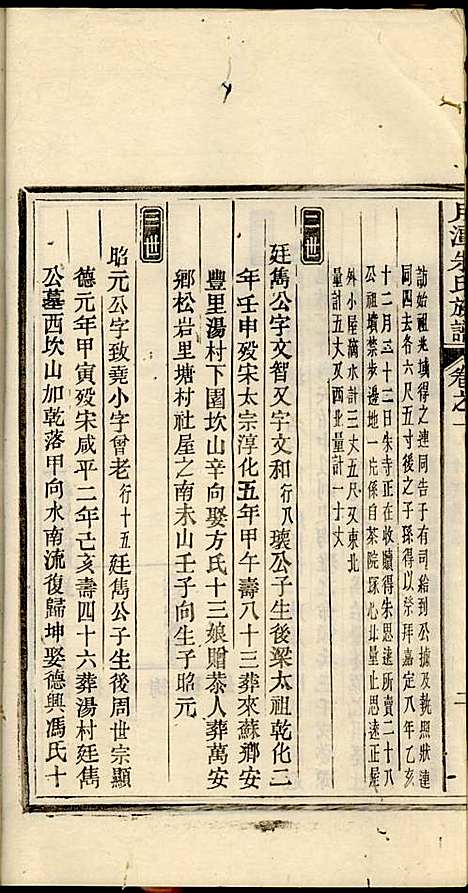 月潭朱氏族譜 卷之一
二
訪始祖兆域得之連同告于有司給到公據及執照狀連
同四去各六尺五寸後之子孫得以祭拜嘉定八年乙亥
十二月三十二日朱寺正在收贖得朱思遠所賣二十八
公祖墳禁步邊地一片係自茶院琢心北量止思遠正屋
外小屋滴水計三丈五尺又東北
量計五丈又西北量計一十丈
二世
廷雋公字文智又字文和行八瓌公子生後梁太祖乾化二
年壬申歿宋太宗淳化五年甲午壽八十三葬來蘇鄉安
豐里湯村下園坎山辛向娶方氏十三娘贈恭人葬萬安
鄉松岩里塘村社屋之南未山壬子向生子昭元
三世
昭元公字致堯小字曾老行十五廷雋公子生後周世宗顯
德元年甲寅歿宋咸平二年己亥壽四十六葬湯村廷雋
公墓西坎山加乾落甲向水南流復歸坤娶德興馮氏十